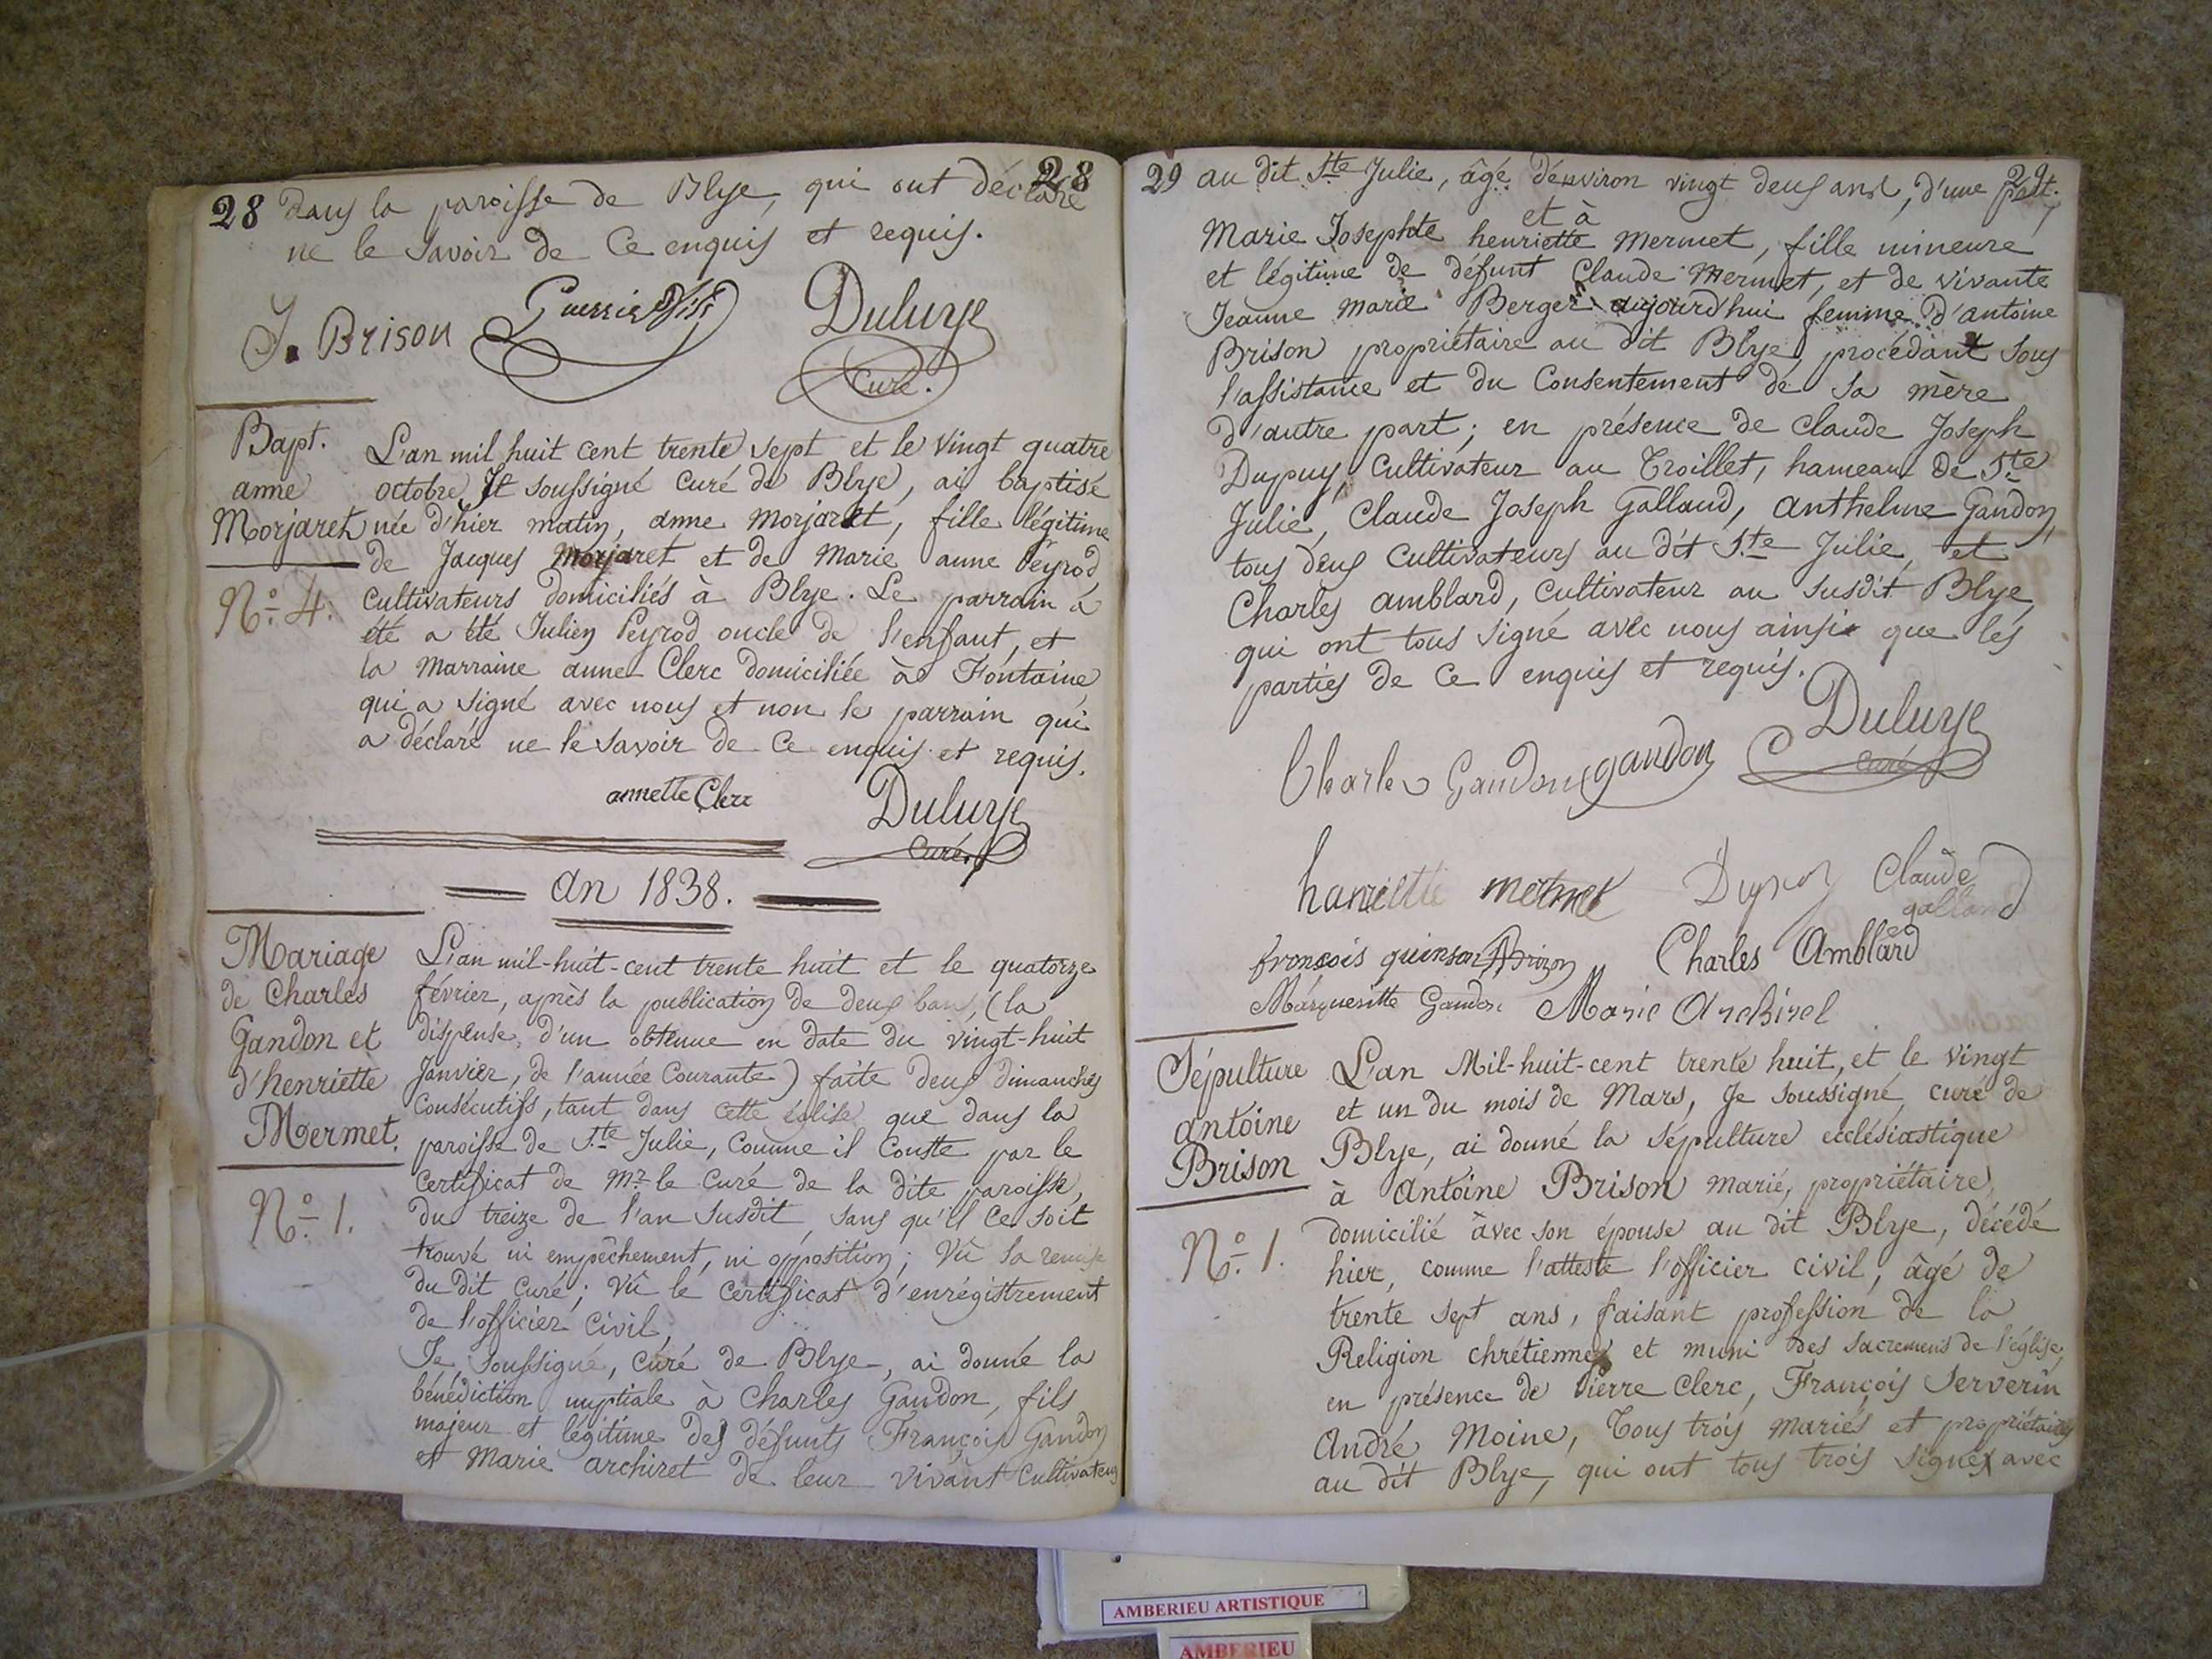 28 dans la paroisse de Blye, qui ont déclaré 28
ne le savoir de Ce enquis et requis.
J. Brison Guerrier fils Duluye
Curé.
Bapt.
anne
Morjaret
N.° 4.
L'an mil huit cent trente sept et le vingt quatre
octobre Je soussigné Curé de Blye, ai baptisé
née d'hier matin, anne Morjaret, fille légitime
de Jacques Morjaret et de Marie anne Peyrod
Cultivateurs domiciliés à Blye. Le parrain a
été a été Julien Peyrod oncle de l'enfant, et
la Marraine anne Clerc domiciliée à Fontaine
qui a signé avec nous et non le parrain qui
a déclaré ne le savoir de Ce enquis et requis.
annette Clerc Duluye
Curé
an 1838.
Mariage
de Charles
Gandon et
d'henriette
Mermet.
N.° 1.
L'an mil-huit-cent trente huit et le quatorze
février, après la publication de deux bans, (la
dispense d'un obtenue en date du vingt-huit
Janvier, de l'année Courante) faite deux dimanches
Consécutifs, tant dans cette église que dans la
paroisse de S.te Julie, Comme il Conste par le
Certificat de Mr le Curé de la dite paroisse,
du treize de l'an susdit, sans qu'il ce soit
trouvé ni empêchement, ni opposition; Vû la remise
du dit Curé; Vû le Certificat d'enrégistrement
de l'officier Civil,
Je soussigné, Curé de Blye, ai donné la
bénédiction nuptiale à Charles Gandon, fils
majeur et légitime des défunts François Gandon
et Marie archiret de leur vivant Cultivateurs
29 au dit Ste Julie, âgé d'environ vingt deux ans, d'une part. 29
et à
Marie Josephte henriette Mermet, fille mineure
et légitime de défunt Claude Mermet, et de vivante
Jeanne Marie Berger aujourd'hui femme d'antoine
Brison propriétaire au dit Blye, procédant sous
l'assistance et du Consentement de sa mère
d'autre part; en présence de Claude Joseph
Dupuy, Cultivateur au Troillet, hameau de S.te
Julie, Claude Joseph Galland, Anthelme Gandon,
tous deux Cultivateurs au dit S.te Julie, et
Charles Amblard, Cultivateur au susdit Blye,
qui ont tous signé avec nous ainsi que les
parties de Ce enquis et requis.
Charles Gandon gandon Duluye
Curé
hanriette mermet Dupuy Claude
galland
françois guinson Brizon Charles Amblard
Margueritte Gandon Marie Archirel
Sépulture
antoine
Brison
N.° 1.
L'an Mil-huit-cent trente huit, et le vingt
et un du mois de Mars, Je soussigné, curé de
Blye, ai donné la sépulture ecclésiastique
à Antoine Brison marié, propriétaire,
domicilié avec son épouse au dit Blye, décédé
hier, comme l'atteste l'officier civil, âgé de
trente sept ans, faisant profession de la
Religion chrétienne et muni des sacremens de l'église,
en présence de Pierre Clerc, François Serverin
André Moine, Tous trois mariés et propriétaires
au dit Blye, qui ont tous trois signé avec
AMBERIEU ARTISTIQUE
AMBERIEU